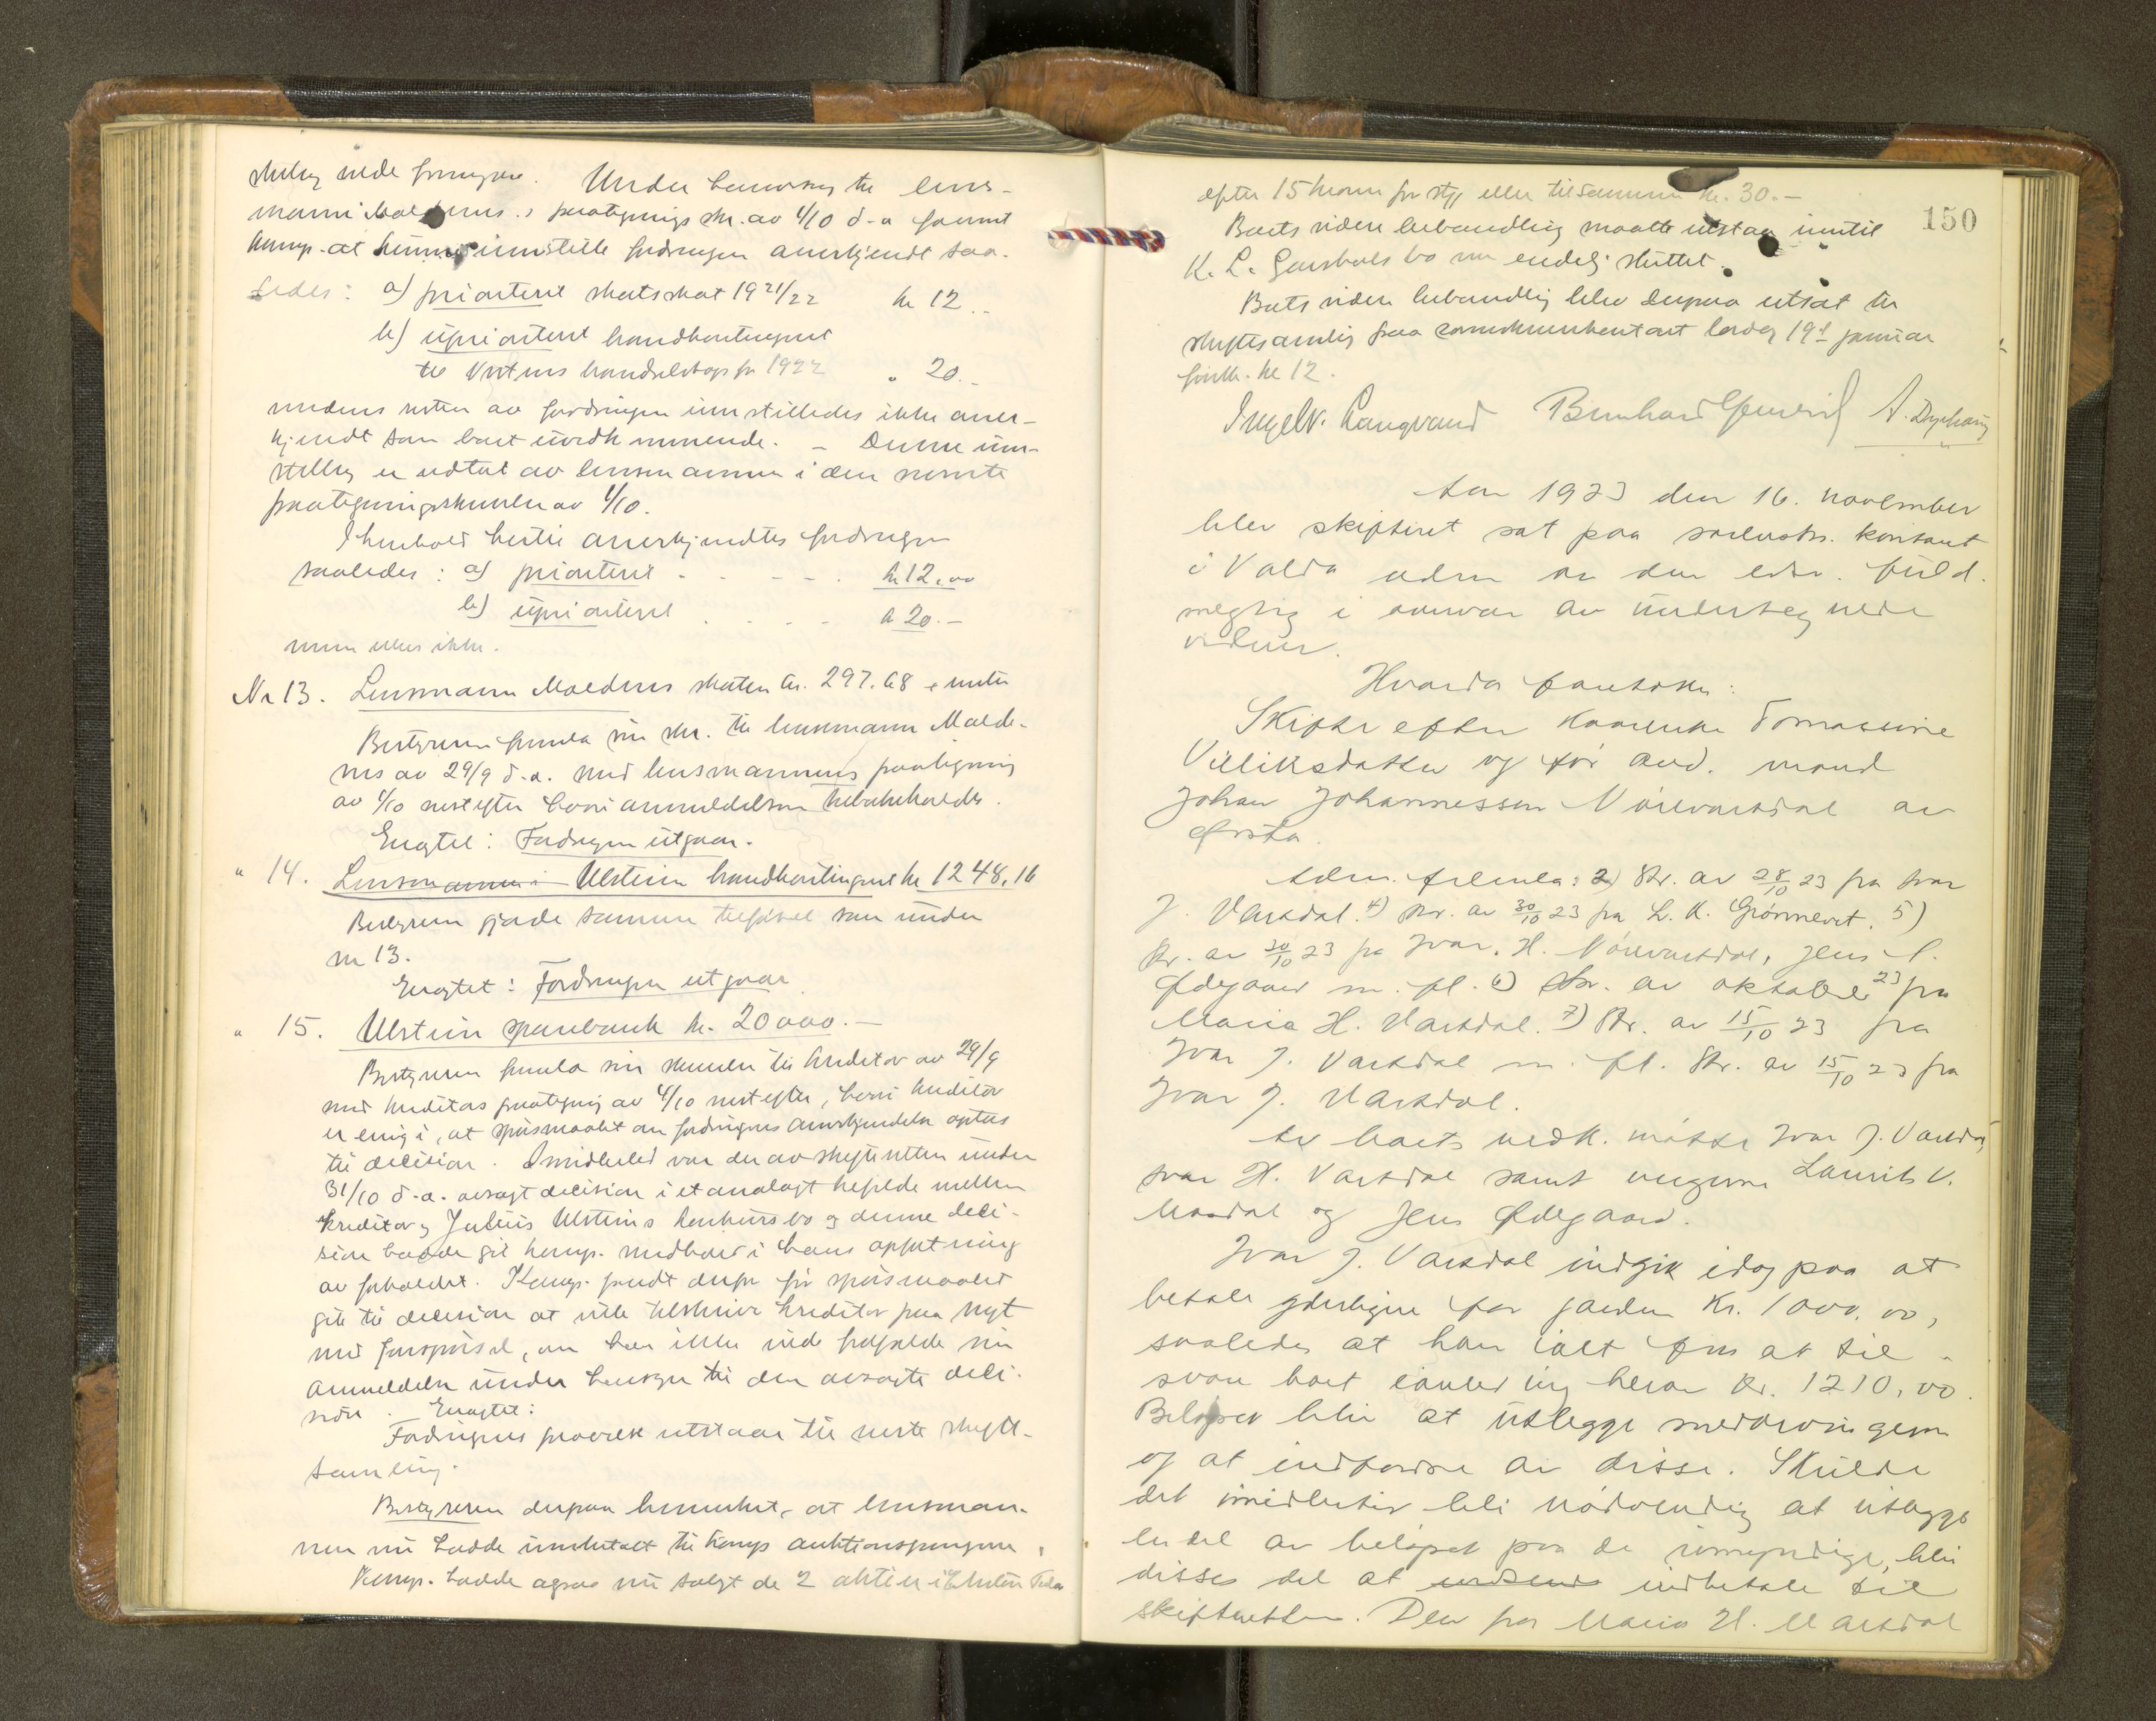 Under henvisning til lens-
mann Maldenes paategnings skr. av 1/10 d.a. fandt
komp. at kunne innstille fordringen anerkjendt saa-
ledes: a) prioritert skatskat 1921/22 kr 12 ..
b) uprioritert brandkontingent
til handelslags for 1922 " 20.-
medens resten av fordringen innstilledes ikke aner-
kjendt som boet uvedkommende. - Denne inn-
stilling er vedtat av lensmannen i den nevnte
paategningsskrivelse av 1/10.
I henhold hertil anerkjendtes fordringen
saaledes: a) prioritert . - - - . kr 12,00
b) uprioritert . . - - - k 20.-
men ellers ikke.
Nr 13. Lensmann Maldenes skatten kr. 297.68 e renter
Bestyreren fremla sin skr. til lensmann Malde-
nes av 29/9 d.a. med lensmannens paategning
av 1/10 nestefter hvori anmeldelsen tilbakekaldes.
Eragtet: Fordringen utgaar.
" 14. Lensmannen i Ulstein brandkontingent kr 1248,16
Bestyreren gjorde samme tilførsel som under
nr 13.
Eragtet: Fordringen utgaar
" 15. Ulstein sparebank kr. 20000.-
Bestyreren fremla sin skrivelse til kreditor av 29/9
med kreditors paategning av 4/10 nestefter, hvori kreditor
er enig i, at spørsmaalet om fordringens anerkjendelse optas
til decision. Imidlertid var der av skifteretten under
31/10 d.a. avsagt decision i et analogt tilfælde mellem
kreditor og Julius Ulsteins konkursbo og denne deci-
sion hadde git komp. medhold i hans opfatning
av forholdet. Komp. fandt derfor før spørsmaalet
gik til decision at ville tilskrive kreditor paa nyt
med forespørsel, om han ikke vil frafalde sin
anmeldelse under hensyn til den avsagte deci-
sion. Eragtet:
Fordringens prøvelse utstaar til neste skifte-
samling.
Bestyreren derpaa bemerket, at lensman-
nen nu hadde innbetalt til komp auktionspengene.
Komp. hadde ogsaa nu solgt de 2 aktier i
efter 15 kroner pr stk, eller tilsammen kr. 30.-
150
Boets videre behandling maatte utstaa inntil
K. L. bo var endelig sluttet.
Boets videre behandling blev derpaa utsat til
skiftesamling paa sorenskriverkontoret lørdag 19de januar
førstk. kl 12.
Ingelv. Langvand Bernhard
Aar 1923 den 16. november
blev skifteret sat paa sorenskr. kontoret
i Volda adm av den edsv. fuld-
mægtig i overvær av undertegnede
vidner.
Hvorda foretokes:
Skifte efter Kaarinka Tomassine
Villiksdatter og før avd. mand
Johan Johannessen Nørevartdal av
Ørsta.
Adm. fremla: 2) Skr. av 28/10 23 fra Ivar
J. Vartdal. 4) skr. av 30/10 23 fra L. K. Grønnevet. 5)
Skr. av 30/10 23 fra Ivar. H. Nørevartdal, Jens
Ødegaard m. fl. 6) Skr. av oktober 23 fra
Maria H. Vartdal. 7) Skr. av 15/10 23 fra
Ivar J. Vartdal m. fl. Skr. av 15/10 23 fra
Ivar J. Vartdal.
Av boets vedk. møtte Ivar J. Vartdal,
Ivar H. Vartdal samt vergerne Laurits V.
og Jens Ødegaard.
Ivar J. Vartdal indgik idag paa at
betale yderligere for gaarden Kr. 1000,00,
saaledes at han ialt faar at til-
svare boet herav Kr. 1210,00.
Beløpet blir at utlegge medarvingerne
og at indfordre av disse. Skulde
det imidlertid bli nødvendig at utlegge
en del av beløpet paa de umyndige, blir
disses del at indsende indbetale til
skifteretten. Den fra Maria H. Vartdal